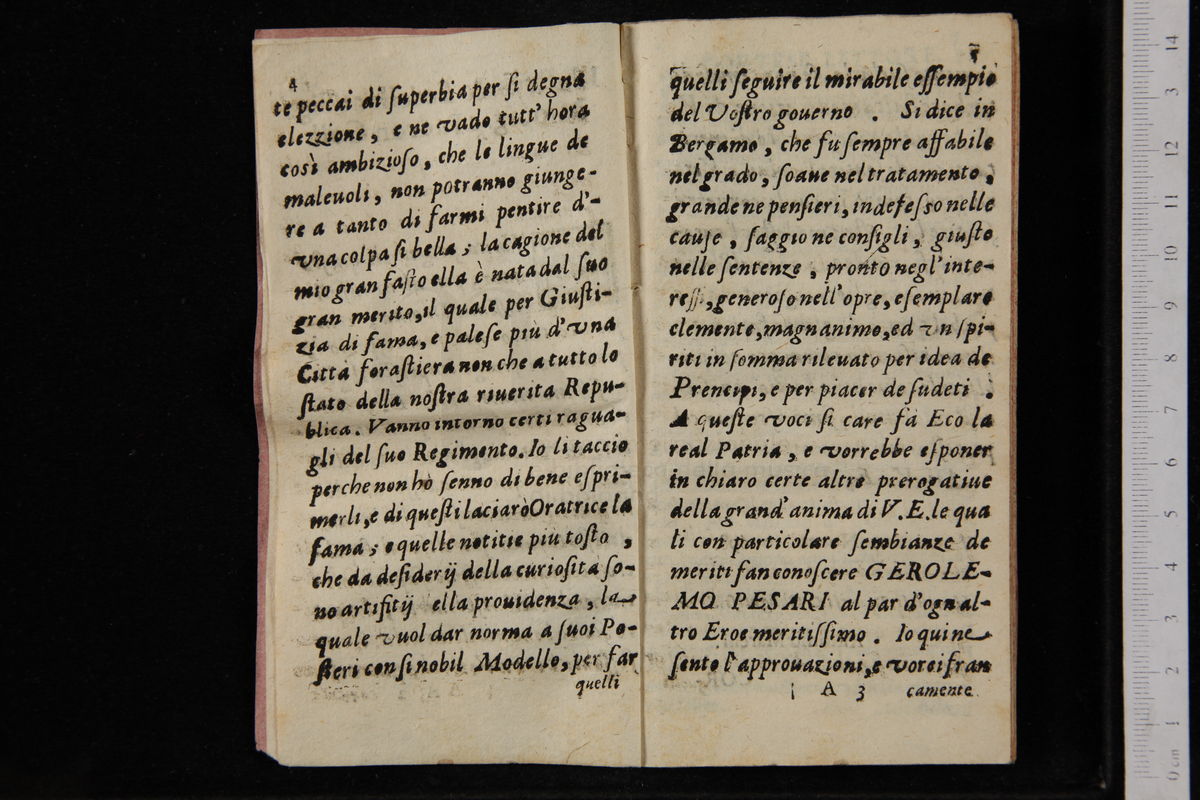 4
te peccai di superbia per si degna
elezzione, e ne vado tutt' hora
così ambizioso, che le lingue de
maleuoli, non potranno giunge-
re a tanto di farmi pentire d'-
vna colpa si bella; la cagione del
mio gran fasto ella è nata dal suo
gran merito, il quale per Giusti-
zia di fama, e palese più d'vna
Città forastiera non che a tutto lo
stato della nostra riuerita Repu-
blica. Vanno intorno certi ragua-
gli del suo Regimento. Io li taccio
perche non hò senno di bene espri-
merli, e di questi laciarò Oratrice la
fama; e quelle notitie più tosto,
che da desiderij della curiosita so-
no artifitij ella prouidenza, la
quale vuol dar norma a suoi Po-
steri con si nobil Modello, per far
quelli
5
quelli seguire il mirabile essempio
del Vostro gouerno. Si dice in
Bergamo, che fu sempre affabile
nel grado, soaue nel tratamento,
grande ne pensieri, indefesso nelle
cause, saggio ne consigli, giusto
nelle sentenze, pronto negl'inte-
ressi, generoso nell'opre, esemplare
clemente, magnanimo, ed vn spi-
riti in somma rileuato per idea de
Prencipi, e per piacer de sudeti.
A queste voci si care fà Eco la
real Patria, e vorrebbe esponer
in chiaro certe altre prerogatiue
della grand'anima di V. E. le qua
li con particolare sembianze de
meriti fan conoscere GEROLE-
MO PESARI al par d'ogn al-
tro Eroe meritissimo. Io qui ne
sento l'approuazioni, e vorei fran
A 3 camente